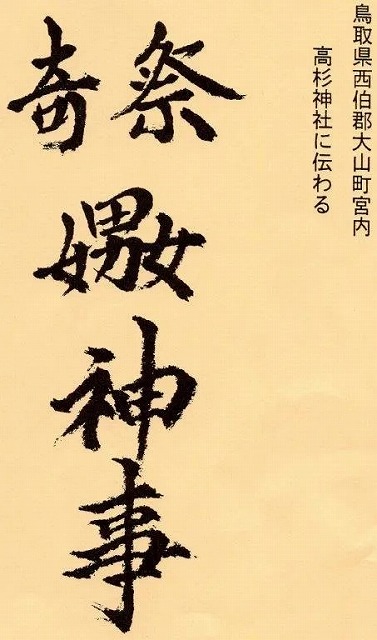 鳥取県西伯郡大山町宮内
高杉神社に伝わる
奇祭
嫐神事